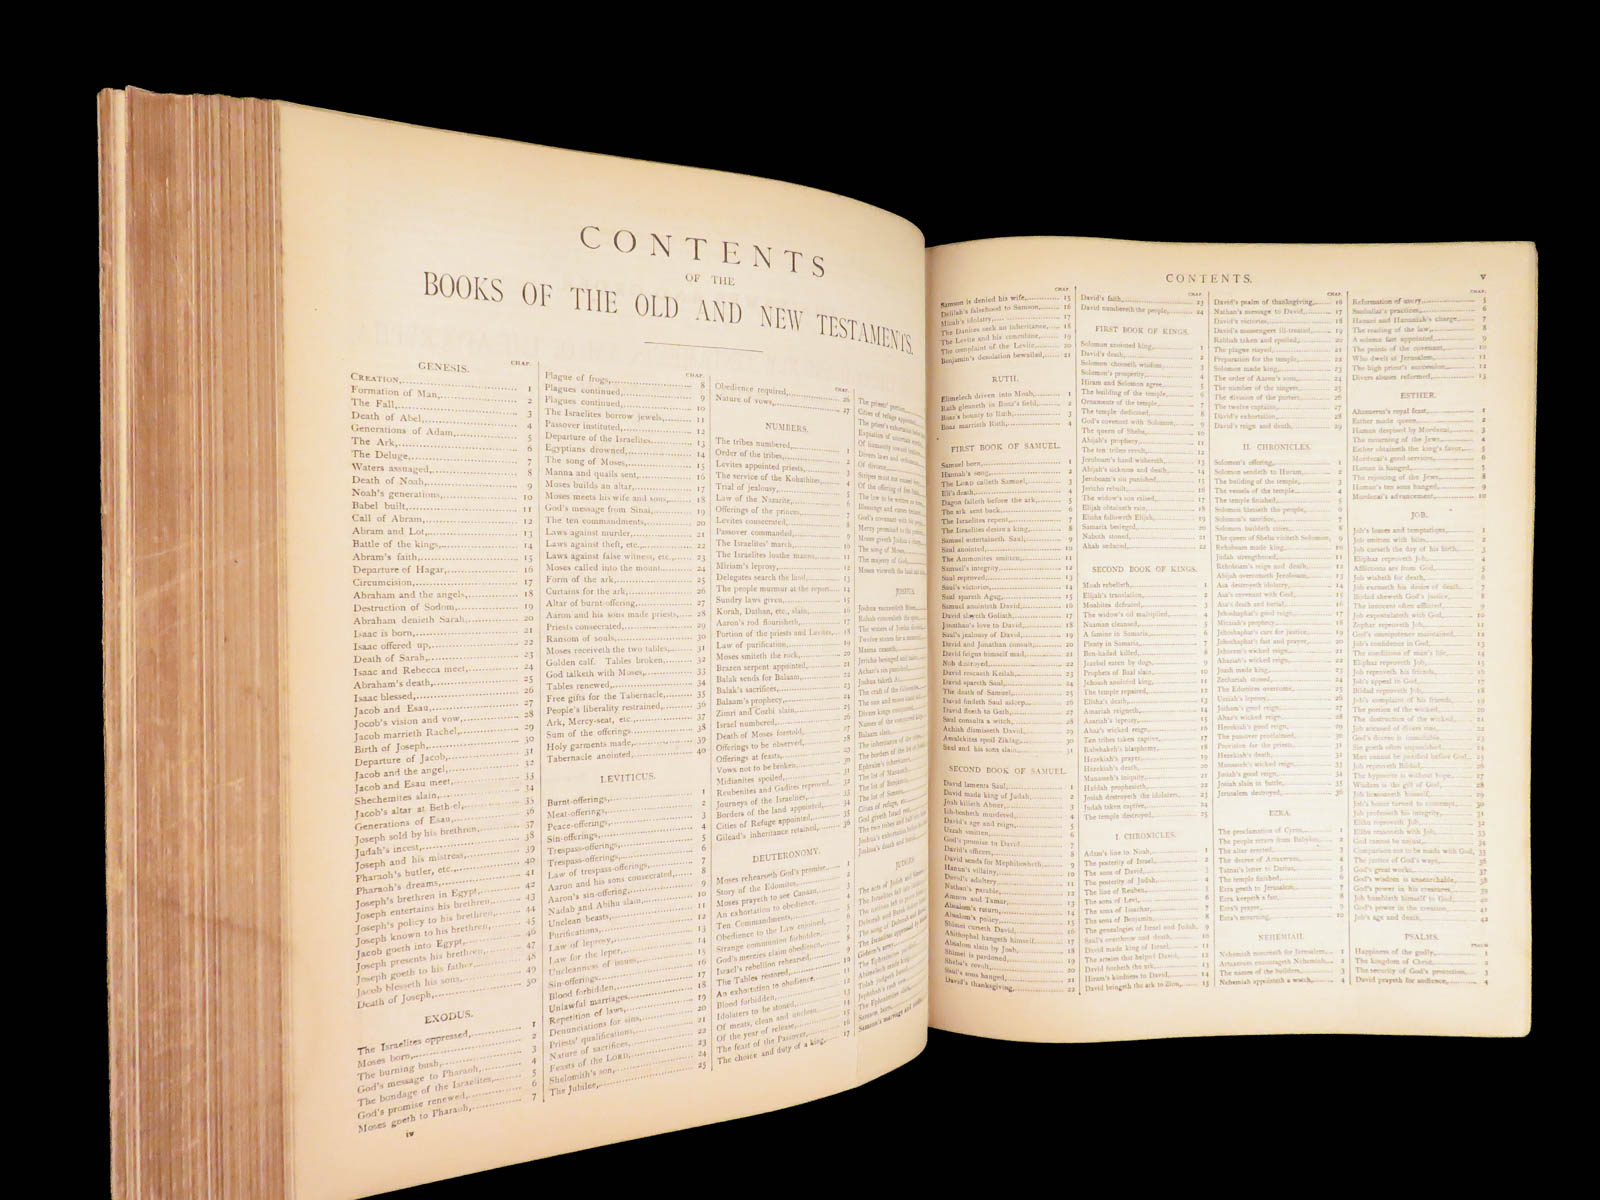 CONTENTS
OF THE
BOOKS OF THE OLD AND NEW TESTAMENTS.
GENESIS.
CHAP.
CREATION, 1
Formation of Man, 2
The Fall, 3
Death of Abel, 4
Generations of Adam, 5
The Ark, 6
The Deluge, 7
Waters assuaged, 8
Death of Noah, 9
Noah's generations, 10
Babel built, 11
Call of Abram, 12
Abram and Lot, 13
Battle of the kings, 14
Abram's faith, 15
Departure of Hagar, 16
Circumcision, 17
Abraham and the angels, 18
Destruction of Sodom, 19
Abraham denieth Sarah, 20
Isaac is born, 21
Isaac offered up, 22
Death of Sarah, 23
Isaac and Rebecca meet, 24
Abraham's death, 25
Isaac blessed, 26
Jacob and Esau, 27
Jocob's vision and vow, 28
Jacob marrieth Rachel, 29
Birth of Joseph, 30
Departure of Jacob, 31
Jacob and the angel, 32
Jacob and Esau meet, 33
Shechemites slain, 34
Jacob's altar at Beth-el, 35
Generations of Esau, 36
Joseph sold by his brethren, 37
Judah's incest, 38
Joseph and his mistress, 39
Pharaoh's butler, etc., 40
Pharaoh's dreams, 41
Joseph's brethren in Egypt, 42
Joseph entertains his brethren, 43
Joseph's policy to his brethren, 44
Joseph known to his brethren, 45
Jacob goeth into Egypt, 46
Joseph presents his brethren, 47
Joseph goeth to his father, 48
Jacob blesseth his sons, 49
Death of Joseph, 50
EXODUS.
The Israelites oppressed, 1
Moses born, 2
The burning bush, 3
God's message to Pharaoh, 4
The bondage of the Israelites, 5
God's promise renewed, 6
Moses goeth to Pharaoh, 7
iv
CHAP.
Plague of frogs, 8
Plagues continued, 9
Plagues continued, 10
The Israelites borrow jewels, 11
Passover instituted, 12
Departure of the Israelites, 13
Egyptians drowned, 14
The song of Moses, 15
Manna and quails sent, 16
Moses builds an altar, 17
Moses meets his wife and sons, 18
God's message from Sinai, 19
The ten commandments, 20
Laws against murder, 21
Laws against theft, etc., 22
Laws against false witness, etc., 23
Moses called into the mount, 24
Form of the ark, 25
Curtains for the ark, 26
Altar of burnt-offering, 27
Aaron and his sons made priests, 28
Priests consecrated, 29
Ransom of souls, 30
Moses receiveth the two tables, 31
Golden calf. Tables broken, 32
God talketh with Moses, 33
Tables renewed, 34
Free gifts for the Tabernacle, 35
People's liberality restrained, 36
Ark, Mercy-seat, etc., 37
Sum of the offerings, 38
Holy garments made, 39
Tabernacle anointed, 40
LEVITICUS.
Burnt-offerings, 1
Meat-offerings, 2
Peace-offerings, 3
Sin-offerings, 4
Trespass-offerings, 5
Trespass-offerings, 6
Law of trespass-offerings, 7
Aaron and his sons consecrated, 8
Aaron's sin-offering, 9
Nadab and Abihu slain, 10
Unclean beasts, 11
Purifications, 12
Law of leprosy, 13
Law for the leper, 14
Uncleanness of issues, 15
Sin-offerings, 16
Blood forbidden, 17
Unlawful marriages, 18
Repetition of laws, 19
Denunciations for sins, 20
Priests' qualifications, 21
Nature of sacrifices, 22
Feasts of the LORD, 23
Shelomith's son, 24
The Jubilee, 25
CHAP.
Obedience required, 26
Nature of vows, 27
NUMBERS.
The tribes numbered, 1
Order of the tribes, 2
Levites appointed priests, 3
The service of the Kohathites, 4
Trial of jealousy, 5
Law of the Nazarite, 6
Offerings of the princes, 7
Levites consecrated, 8
Passover commanded, 9
The Israelites' march, 10
The Israelites loathe manna, 11
Miriam's leprosy, 12
Delegates search the land, 13
The people murmur at the report, 14
Sundry laws given, 15
Korah, Dathan, etc., slain, 16
Aaron's rod flourisheth, 17
Portion of the priests and Levites, 18
Law of purification, 19
Moses smiteth the rock, 20
Brazen serpent appointed, 21
Balak sends for Balaam, 22
Balak's sacrifices, 23
Balaam's prophecy, 24
Zimri and Cozbi slain, 25
Israel numbered, 26
Death of Moses foretold, 27
Offerings to be observed, 28
Offerings at feasts, 29
Vows not to be broken, 30
Midianites spoiled, 31
Reubenites and Gadites reproved, 32
Journeys of the Israelites, 33
Borders of the land appointed, 34
Cities of Refuge appointed, 35
Gilead's inheritance retained, 36
DEUTERONOMY.
Moses rehearseth God's promise, 1
Story of the Edomites, 2
Moses prayeth to see Canaan, 3
An exhortation to obedience, 4
Ten Commandments, 5
Obedience to the Law enjoined, 6
Strange communion forbidden, 7
God's mercies claim obedience, 8
Israel's rebellion rehearsed, 9
The Tables restored, 10
An exhortation to obedience, 11
Blood forbidden, 12
Idolaters to be stoned, 13
Of meats, clean and unclean, 14
Of the year of release, 15
The feast of the Passover, 16
The choice and duty of a king, 17
The priests' portion
Cities of refuge appointed
JOSHUA
JUDGES
CONTENTS.
v
CHAP.
Samson is denied his wife, 15
Delilah's falsehood to Samson, 16
Micah's idolatry, 17
The Danites seek an inheritance, 18
The Levite and his concubine, 19
The complaint of the Levite, 20
Benjamin's desolation bewailed, 21
RUTH.
Elimelech driven into Moab, 1
Ruth gleaneth in Boaz's field, 2
Boaz's bounty to Ruth, 3
Boaz marrieth Ruth, 4
FIRST BOOK OF SAMUEL.
Samuel born, 1
Hannah's song, 2
The LORD calleth Samuel, 3
Eli's death, 4
Dagon falleth before the ark, 5
The ark sent back, 6
The Israelites repent, 7
The Israelites desire a king, 8
Samuel entertaineth Saul, 9
Saul anointed, 10
The Ammonites smitten, 11
Samuel's integrity, 12
Saul reproved, 13
Saul's victories, 14
Saul spareth Agag, 15
Samuel anointeth David, 16
David slayeth Goliath, 17
Jonathan's love to David, 18
Saul's jealousy of David, 19
David and Jonathan consult, 20
David feigns himself mad, 21
Nob destroyed, 22
David rescueth Keilah, 23
David spareth Saul, 24
The death of Samuel, 25
David findeth Saul asleep, 26
David fleeth to Gath, 27
Saul consults a witch, 28
Achish dismisseth David, 29
Amalekites spoil Ziklag, 30
Saul and his sons slain, 31
SECOND BOOK OF SAMUEL.
David laments Saul, 1
David made king of Judah, 2
Joab killeth Abner, 3
Ish-bosheth murdered, 4
David's age and reign, 5
Uzzah smitten, 6
God's promise to David, 7
David's officers, 8
David sends for Mephibosheth, 9
Hanun's villainy, 10
David's adultery, 11
Nathan's parable, 12
Amnon and Tamar, 13
Absalom's return, 14
Absalom's policy, 15
Shimei curseth David, 16
Ahithophel hangeth himself, 17
Absalom slain by Joab, 18
Shimei is pardoned, 19
Sheba's revolt, 20
Saul's sons hanged, 21
David's thanksgiving, 22
CHAP.
David's faith, 23
David numbereth the people, 24
FIRST BOOK OF KINGS.
Solomon anointed king, 1
David's death, 2
Solomon chooseth wisdom, 3
Solomon's prosperity, 4
Hiram and Solomon agree, 5
The building of the temple, 6
Ornaments of the temple, 7
The temple dedicated, 8
God's covenant with Solomon, 9
The queen of Sheba, 10
Ahijah's prophecy, 11
The ten tribes revolt, 12
Jeroboam's hand withereth, 13
Abijah's sickness and death, 14
Jeroboam's sin punished, 15
Jericho rebuilt, 16
The widow's son raised, 17
Elijah obtaineth rain, 18
Elisha followeth Elijah, 19
Samaria besieged, 20
Naboth stoned, 21
Ahab seduced, 22
SECOND BOOK OF KINGS.
Moab rebelleth, 1
Elijah's translation, 2
Moabites defeated, 3
The widow's oil multiplied, 4
Naaman cleansed, 5
A famine in Samaria, 6
Plenty in Samaria, 7
Ben-hadad killed, 8
Jezebel eaten by dogs, 9
Prophets of Baal slain, 10
Jehoash anointed king, 11
The temple repaired, 12
Elisha's death, 13
Amaziah reigneth, 14
Azariah's leprosy, 15
Ahaz's wicked reign, 16
Ten tribes taken captive, 17
Rabshakeh's blasphemy, 18
Hezekiah's prayer, 19
Hezekiah's death, 20
Manasseh's iniquity, 21
Huldah prophesieth, 22
Josiah destroyeth the idolaters, 23
Judah taken captive, 24
The temple destroyed, 25
I. CHRONICLES.
Adam's line to Noah, 1
The posterity of Israel, 2
The sons of David, 3
The posterity of Judah, 4
The line of Reuben, 5
The sons of Levi, 6
The sons of Issachar, 7
The sons of Benjamin, 8
The genealogies of Israel and Judah, 9
Saul's overthrow and death, 10
David made king of Israel, 11
The armies that helped David, 12
David fetcheth the ark, 13
Hiram's kindness to David, 14
David bringeth the ark to Zion, 15
CHAP.
David's psalm of thanksgiving, 16
Nathan's message to David, 17
David's victories, 18
David's messengers ill-treated, 19
Rabbah taken and spoiled, 20
The plague stayed, 21
Preparation for the temple, 22
Solomon made king, 23
The order of Aaron's sons, 24
The number of the singers, 25
The division of the porters, 26
The twelve captains, 27
David's exhortation, 28
David's reign and death, 29
II. CHRONICLES.
Solomon's offering, 1
Solomon sendeth to Huram, 2
The building of the temple, 3
The vessels of the temple, 4
The temple finished, 5
Solomon blesseth the people, 6
Solomon's sacrifice, 7
Solomon buildeth cities, 8
The queen of Sheba visiteth Solomon, 9
Rehoboam made king, 10
Judah strengthened, 11
Rehoboam's reign and death, 12
Abijah overcometh Jeroboam, 13
Asa destroyeth idolatry, 14
Asa's covenant with God, 15
Asa's death and burial, 16
Jehoshaphat's good reign, 17
Micaiah's prophecy, 18
Jehoshaphat's care for justice, 19
Jehoshaphat's fast and prayer, 20
Jehoram's wicked reign, 21
Ahaziah's wicked reign, 22
Joash made king, 23
Zechariah stoned, 24
The Edomites overcome, 25
Uzziah's leprosy, 26
Jotham's good reign, 27
Ahaz's wicked reign, 28
Hezekiah's good reign, 29
The passover proclaimed, 30
Provision for the priests, 31
Hezekiah's death, 32
Manasseh's wicked reign, 33
Josiah's good reign, 34
Josiah slain in battle, 35
Jerusalem destroyed, 36
EZRA.
The proclamation of Cyrus, 1
The people return from Babylon, 2
The altar erected, 3
The decree of Artaxerxes, 4
Tatnai's letter to Darius, 5
The temple finished, 6
Ezra goeth to Jerusalem, 7
Ezra keepeth a fast, 8
Ezra's prayer, 9
Ezra's mourning, 10
NEHEMIAH.
Nehemiah mourneth for Jerusalem, 1
Artaxerxes encourageth Nehemiah, 2
The names of the builders, 3
Nehemiah appointeth a watch, 4
CHAP.
Reformation of usury, 5
Sanballat's practices, 6
Hanani and Hananiah's charge, 7
The reading of the law, 8
A solemn fast appointed, 9
The points of the covenant, 10
Who dwelt at Jerusalem, 11
The high priest's succession, 12
Divers abuses reformed, 13
ESTHER.
Ahasuerus's royal feast, 1
Esther made queen, 2
Haman despised by Mordecai, 3
The mourning of the Jews, 4
Esther obtaineth the king's favor, 5
Mordecai's good services, 6
Haman is hanged, 7
The rejoicing of the Jews, 8
Haman's ten sons hanged, 9
Mordecai's advancement, 10
JOB.
Job's losses and temptations, 1
Job smitten with biles, 2
Job curseth the day of his birth, 3
Eliphaz reproveth Job, 4
Afflictions are from God, 5
Job wisheth for death, 6
Job excuseth his desire of death, 7
Bildad sheweth God's justice, 8
The innocent often afflicted, 9
Job expostulateth with God, 10
Zophar reproveth Job, 11
God's omnipotence maintained, 12
Job's confidence in God, 13
The conditions of man's life, 14
Eliphaz reproveth Job, 15
Job reproveth his friends, 16
Job's appeal to God, 17
Bildad reproveth Job, 18
Job's complaint of his friends, 19
The portion of the wicked, 20
The destruction of the wicked, 21
Job accused of divers sins, 22
God's decree is immutable, 23
Sin goeth often unpunished, 24
Man cannot be justified before God, 25
Job reproveth Bildad, 26
The hypocrite is without hope, 27
Wisdom is the gift of God, 28
Job bemoaneth himself, 29
Job's honor turned to contempt, 30
Job professeth his integrity, 31
Elihu reproveth Job, 32
Elihu reasoneth with Job, 33
God cannot be unjust, 34
Comparison not to be made with God, 35
The justice of God's ways, 36
God's great works, 37
God's wisdom is unsearchable, 38
God's power in his creatures, 39
Job humbleth himself to God, 40
God's power in the creation, 41
Job's age and death, 42
PSALMS.
PSALM
Happiness of the godly, 1
The kingdom of Christ, 2
The security of God's protection, 3
David prayeth for audience, 4